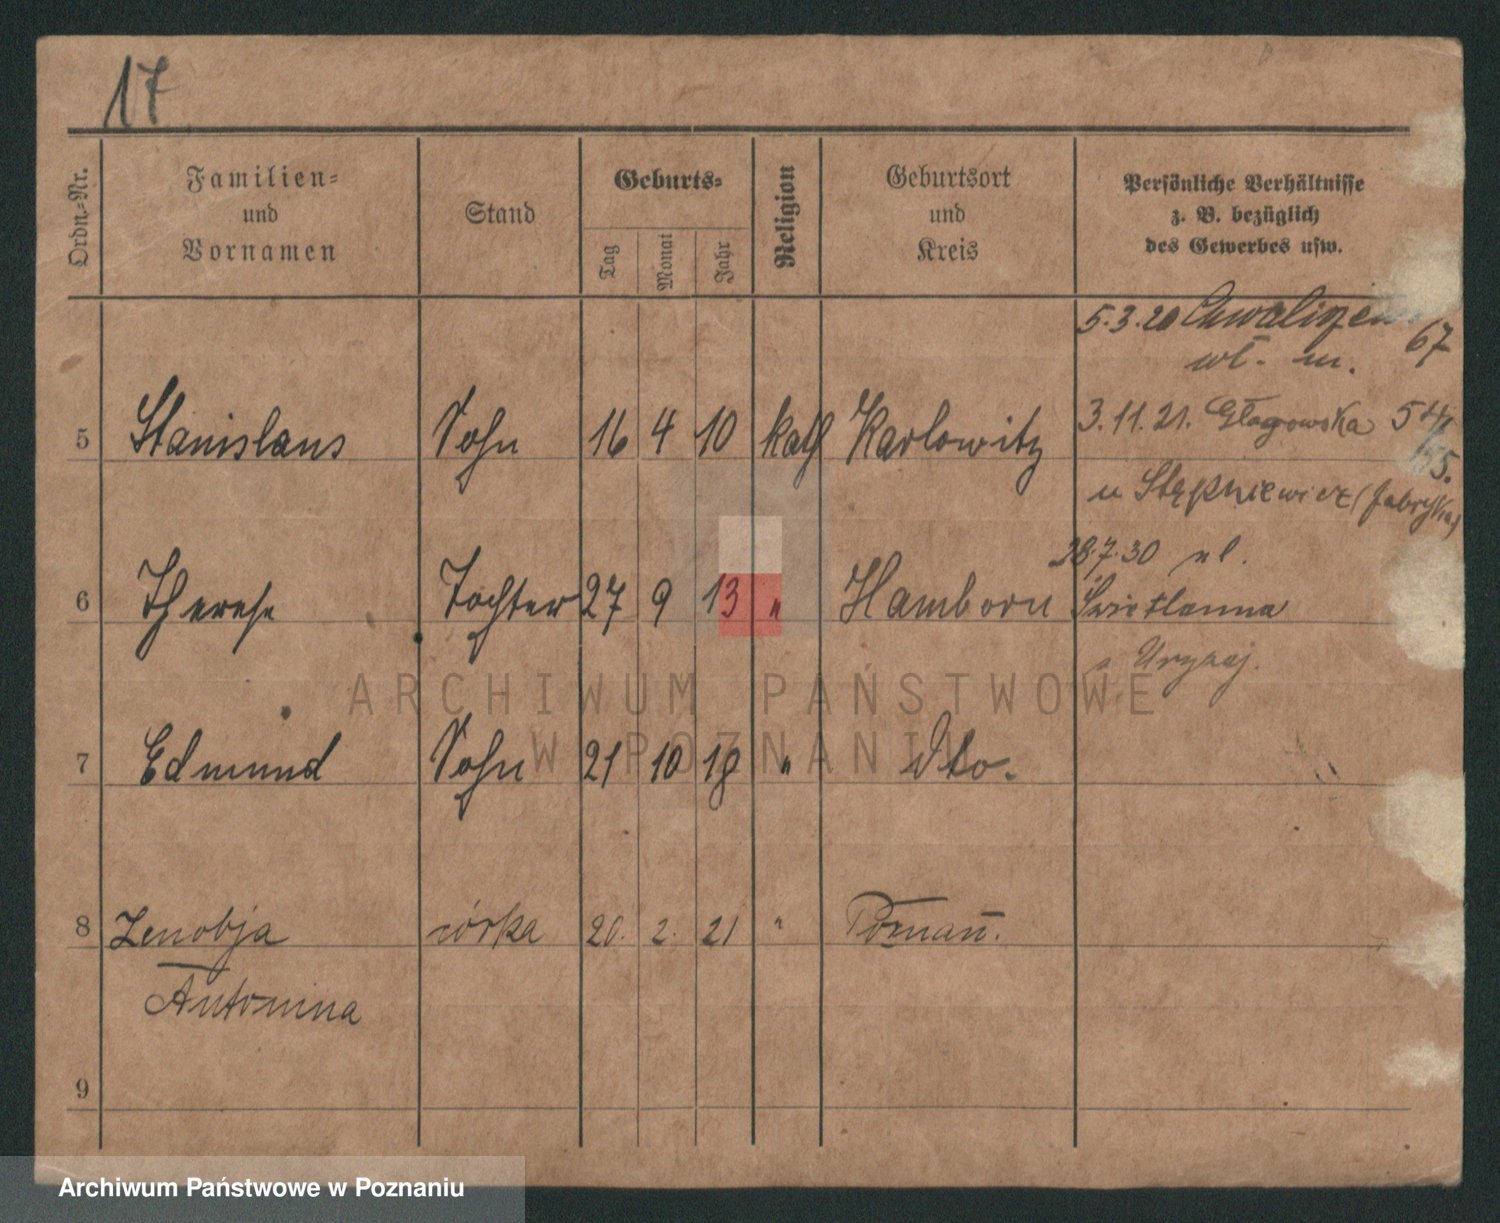 17
Ordn=Nr.
Familien=
und
Vornamen
Stand
Geburts=
Tag
Monat
Jahr
Religion
Geburtsort
und
Kreis
Persönliche Verhältnisse
z. B. bezüglich
des Gewerbes usw.
5.3.20 67
wł. m.
5 Stanislaus Sohn 16 4 10 kath Karlowitz 3.11.21. Głogowska 54/
55.
u Stępniewicz (fabryka)
28.7.30 ul.
6 Therese Tochter 27 9 13 " Hamborn Świetlanna
Uryzaj.
7 Edmund Sohn 21 10 18 " dto.
8 Zenobja córka 20. 2. 21 " Poznań.
Antonina
9
ARCHIWUM PAŃSTWOWE
W POZNANIU
Archiwum Państwowe w Poznaniu